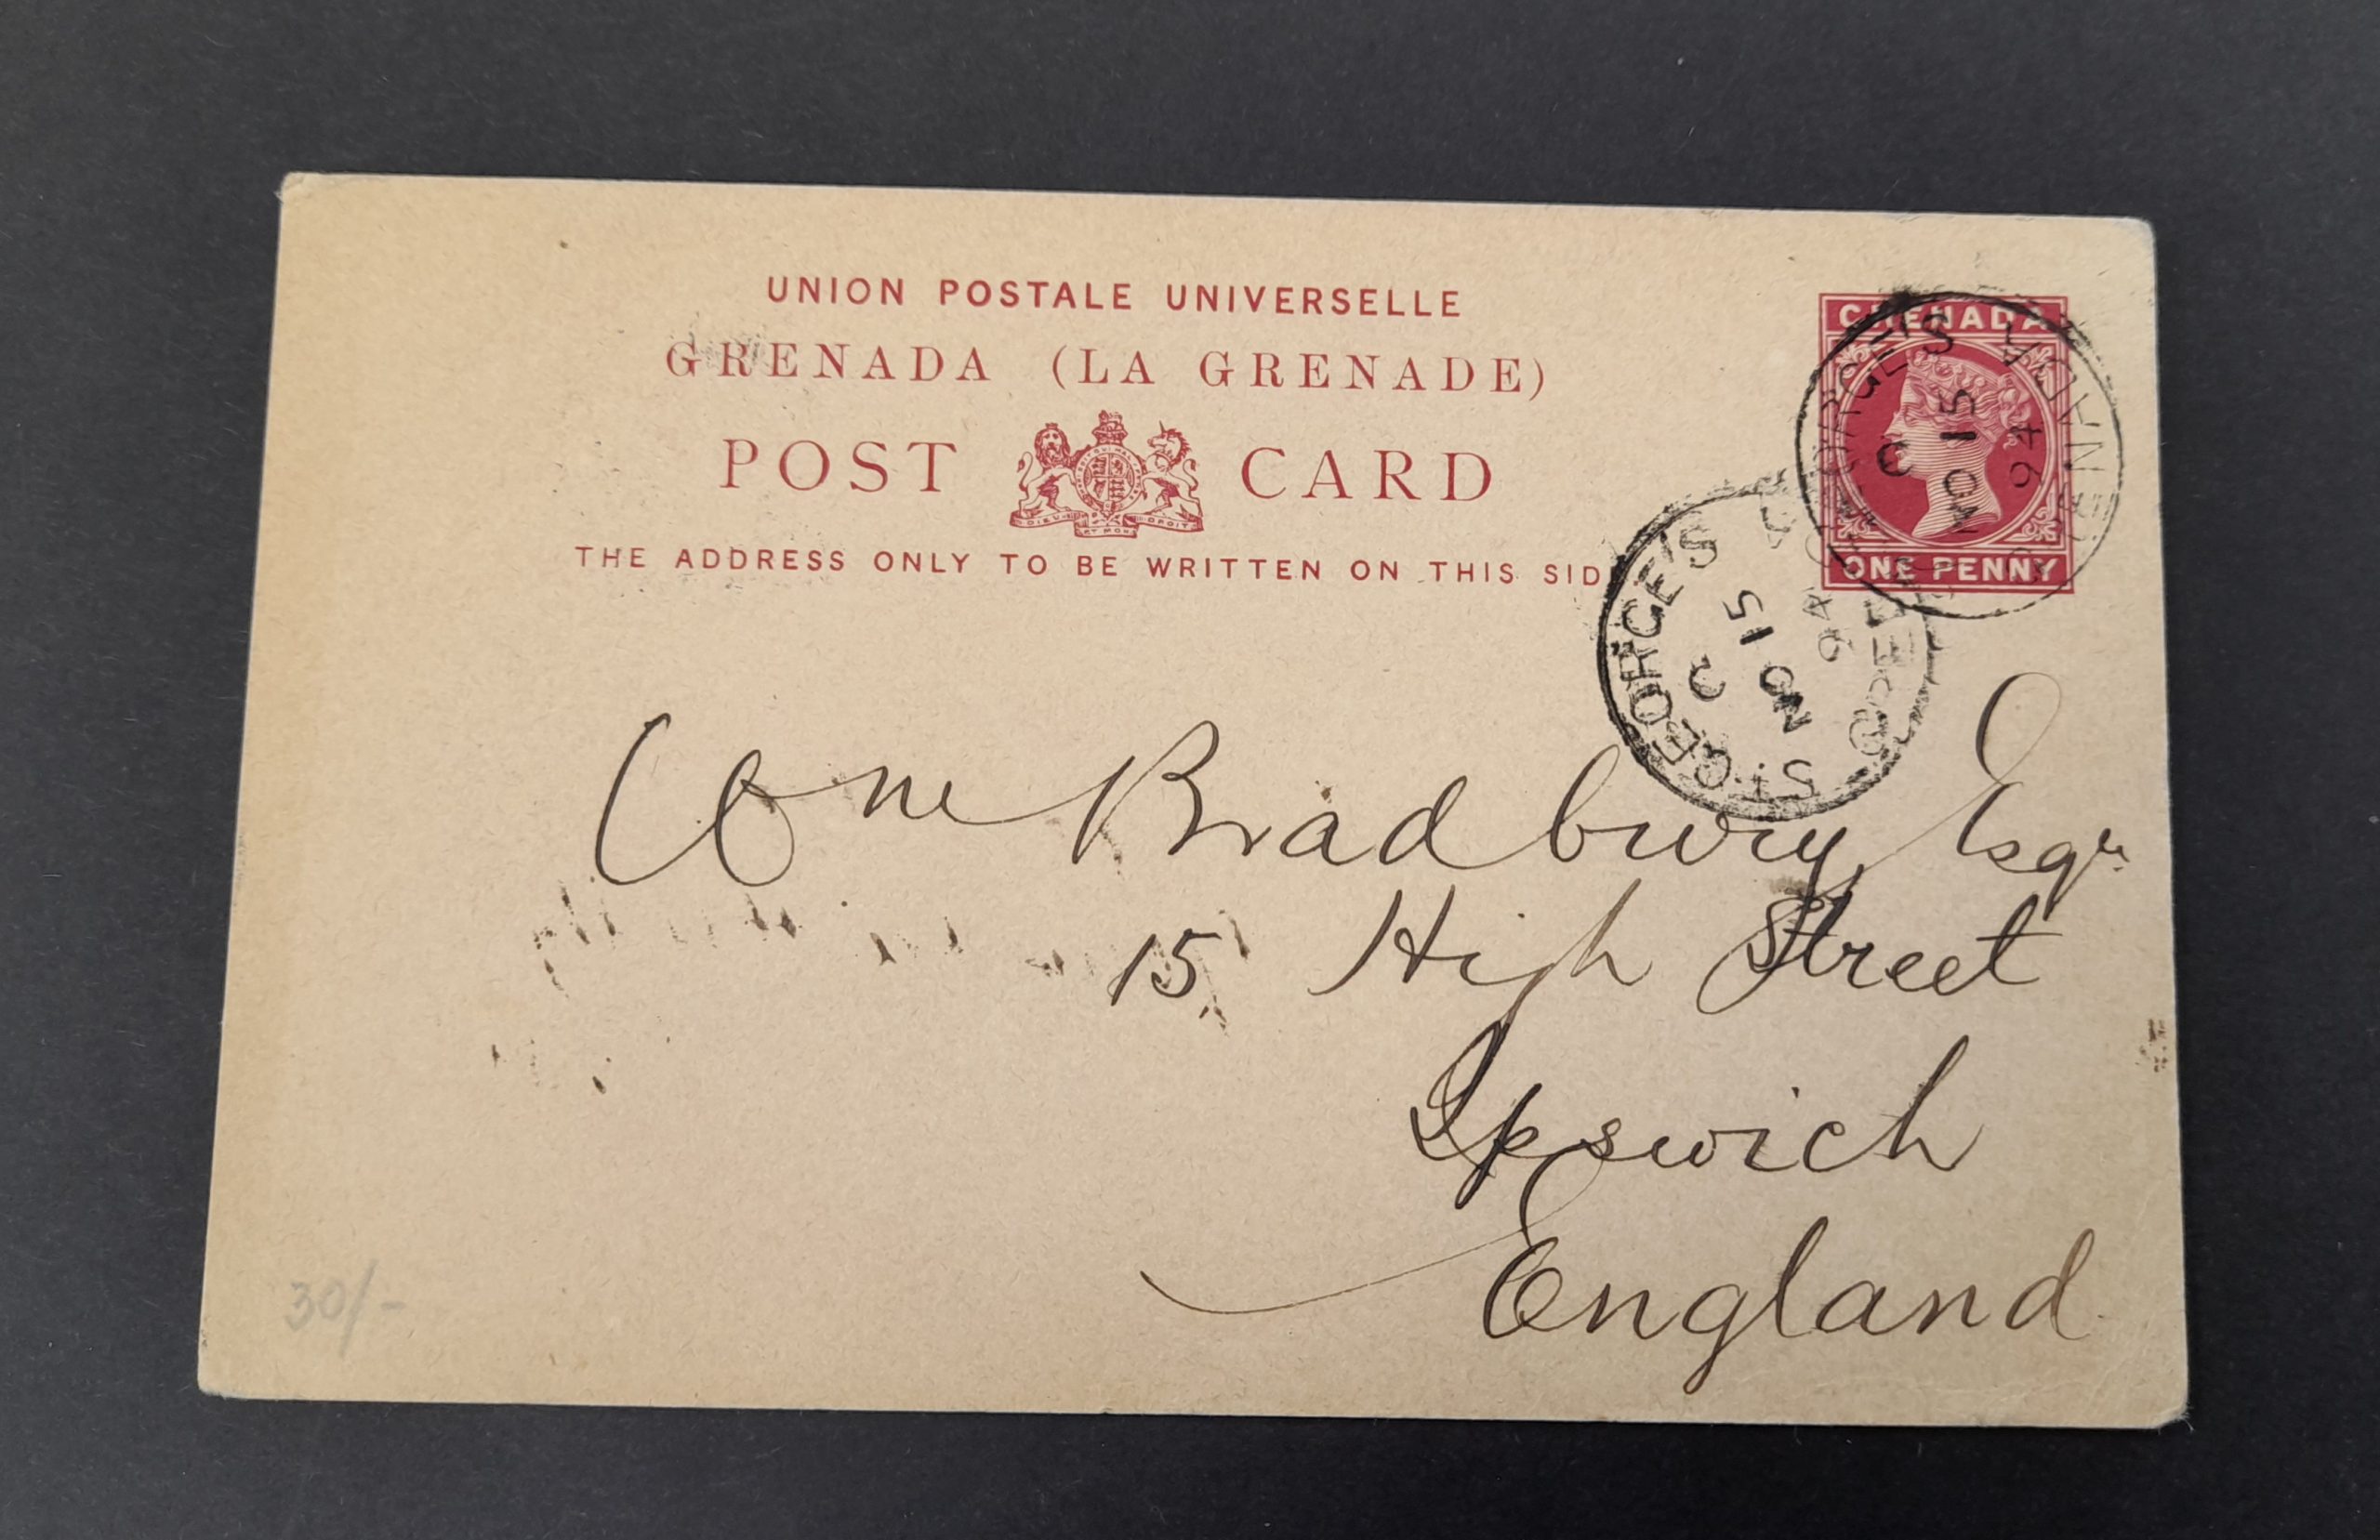 UNION POSTALE UNIVERSELLE
GRENADA (LA GRENADE)
POST CARD
DIEU ET MON DROIT
THE ADDRESS ONLY TO BE WRITTEN ON THIS SID
GRENADA
ONE PENNY
ST GEORGE'S GRENADA
C
NO 15
94
ST GEORGE'S
C
NO 15
94
Wm Bradbury Esqr.
15 High Street
Ipswich
England
30/-